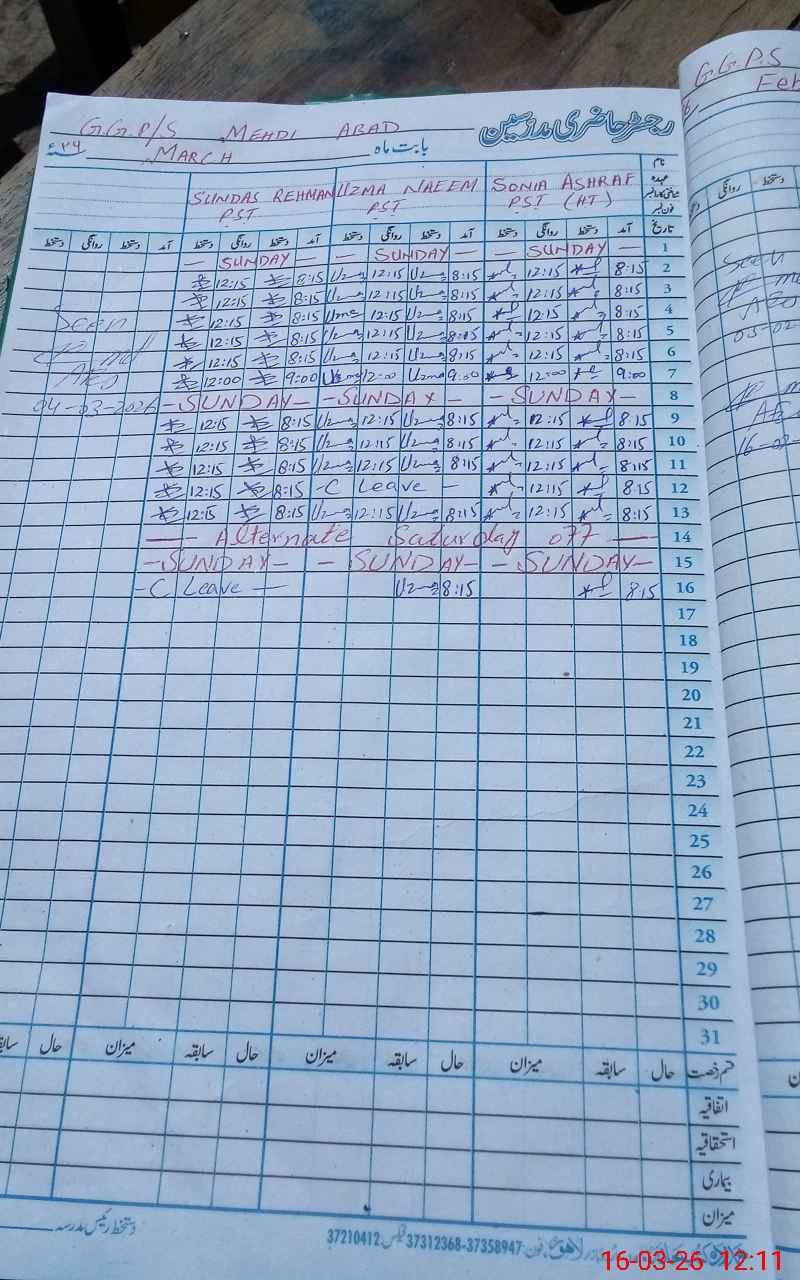 رجسٹر حاضری مدرسین
G.G.P/S MEHDI ABAD
بابت ماہ MARCH ۲۶ء
نام
عہدہ
SONIA ASHRAF UZMA NAEEM SUNDAS REHMAN
P.S.T (HT) P.S.T P.S.T
تاریخ آمد دستخط روانگی دستخط آمد دستخط روانگی دستخط آمد دستخط روانگی دستخط آمد دستخط روانگی دستخط
1 — SUNDAY — — SUNDAY — — SUNDAY —
2 8:15 12:15 8:15 Uzma 12:15 Uzma 8:15 12:15
3 8:15 12:15 8:15 Uzma 12:15 Uzma 8:15 12:15
4 8:15 12:15 8:15 Uzma 12:15 Uzma 8:15 12:15
5 8:15 12:15 8:15 Uzma 12:15 Uzma 8:15 12:15
6 8:15 12:15 8:15 Uzma 12:15 Uzma 8:15 12:15
7 9:00 12:00 9:00 Uzma 12:00 Uzma 9:00 12:00
8 - SUNDAY - - SUNDAY - - SUNDAY -
9 8:15 12:15 8:15 Uzma 12:15 Uzma 8:15 12:15
10 8:15 12:15 8:15 Uzma 12:15 Uzma 8:15 12:15
11 8:15 12:15 8:15 Uzma 12:15 Uzma 8:15 12:15
12 8:15 12:15 -C Leave - 8:15 12:15
13 8:15 12:15 8:15 Uzma 12:15 Uzma 8:15 12:15
14 — Alternate Saturday off —
15 - SUNDAY - - SUNDAY - - SUNDAY -
16 8:15 8:15 Uzma -C Leave —
17
18
19
20
21
22
23
24
25
26
27
28
29
30
31
Seen
AEO
04-03-2026
قسم رخصت حال سابقہ میزان حال سابقہ میزان حال سابقہ میزان حال سابقہ
اتفاقیہ
استحقاقیہ
بیماری
میزان
دستخط رئیس مدرسہ
لاہور فون: 37312368-37358947 فیکس 37210412
G.G.P.S
Feb
روانگی دستخط
Seen
AEO
05-02
AE
16-02
16-03-26 12:11